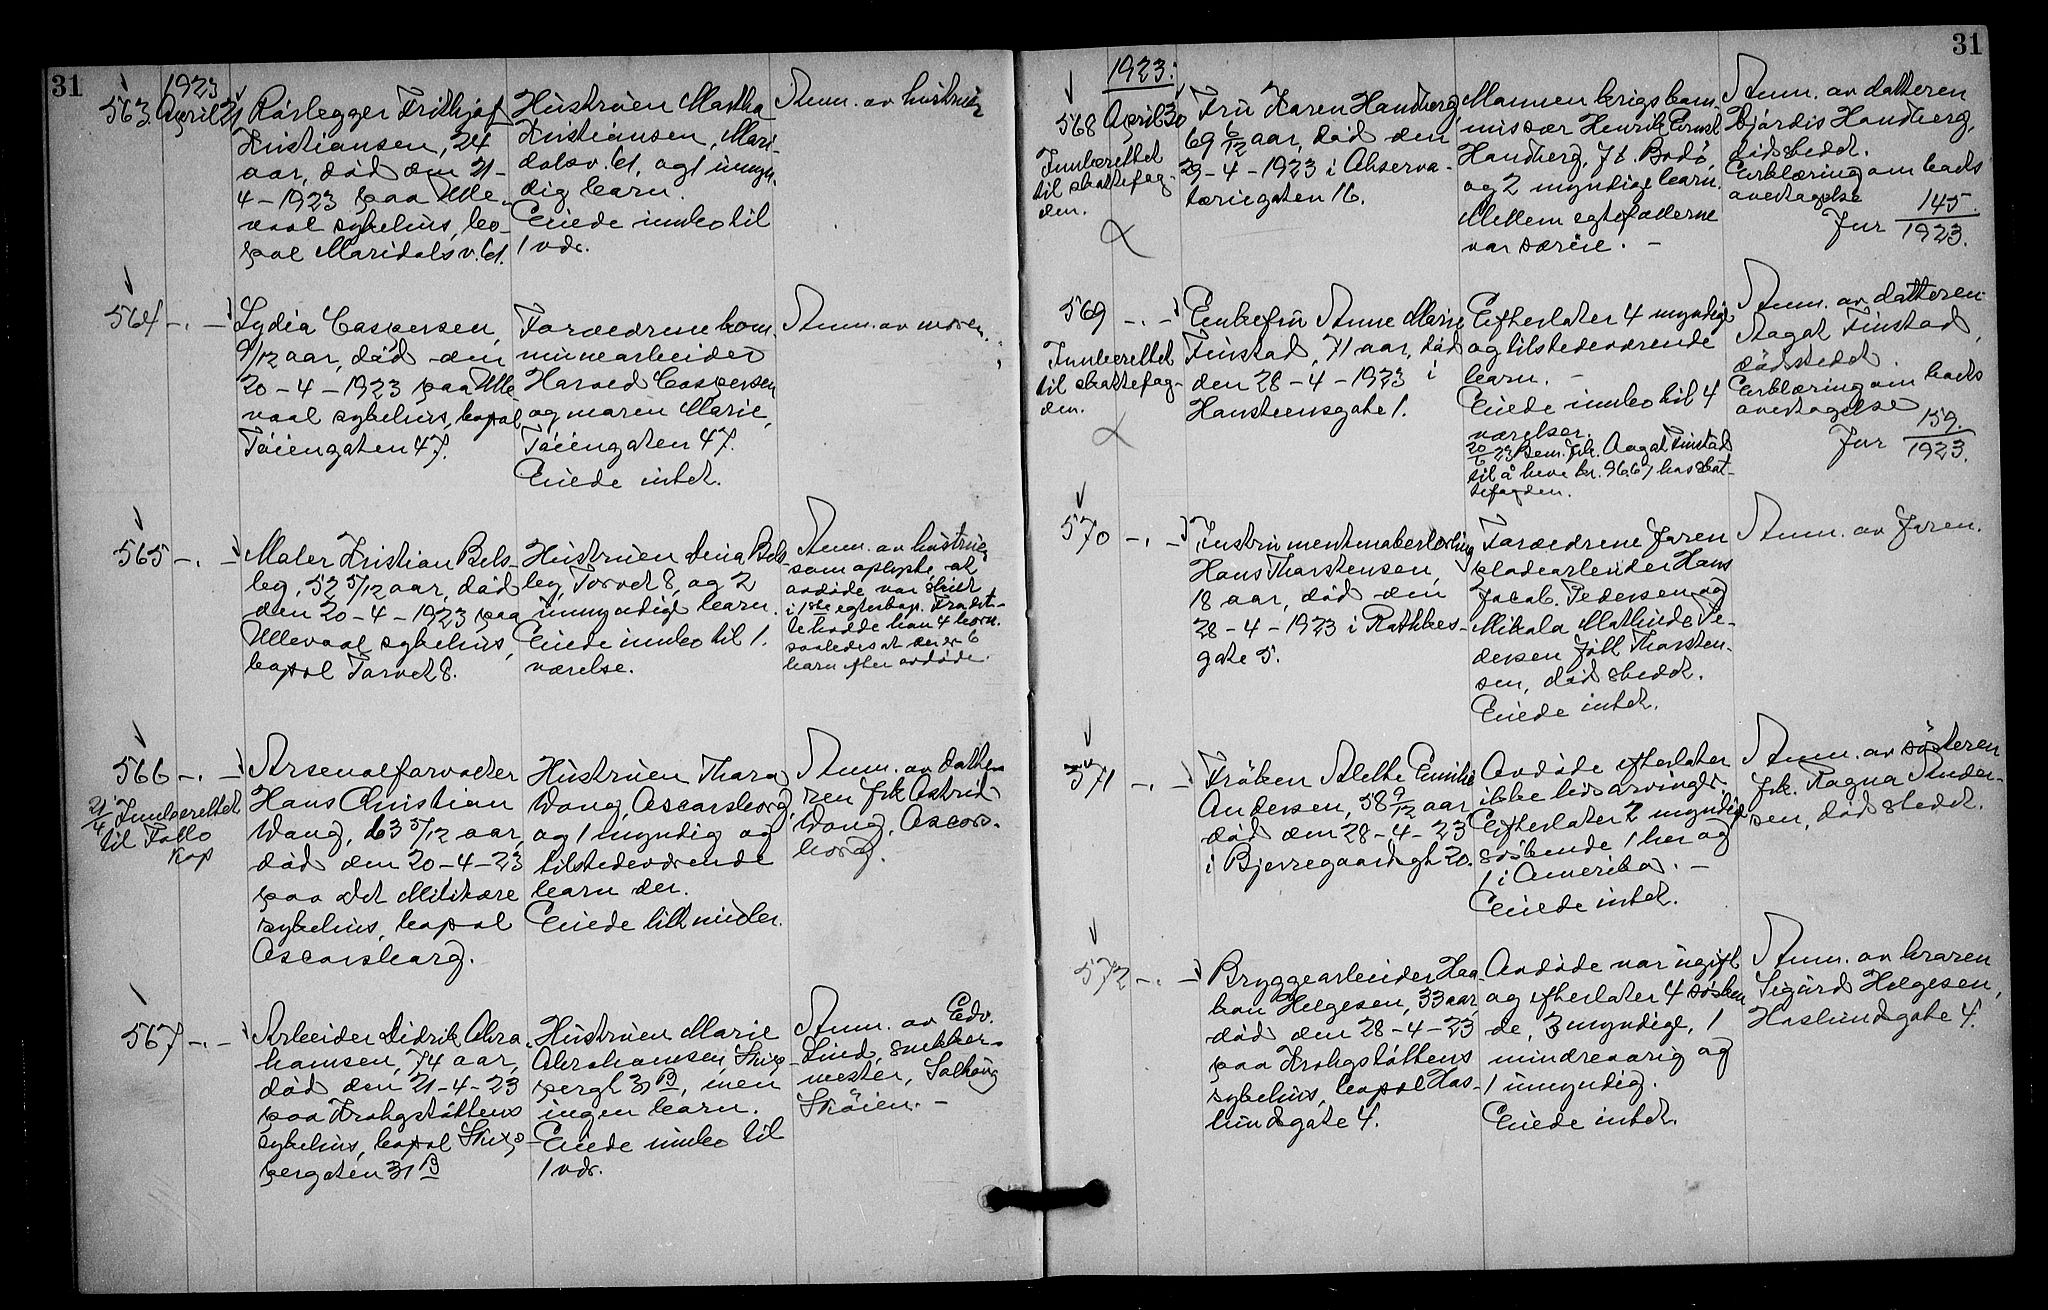 31
1923
563. April 21
Rørlegger Fridthjof
Kristiansen, 24
aar, død den 21-
4-1923 paa Ulle-
vaal sykehus, bo-
pæl Maridalsv. 61.
Hustruen Martha
Kristiansen, Mari-
dalsv. 61, og 1 umyn-
dig barn.
Eiede innbo til
1 vær.
Anm. av hustruen
564 -.-
Lydia Caspersen,
9/12 aar, død den
20-4-1923 paa Ulle-
vaal sykehus, bopæl
Tøiengaten 47.
Forældrene kom-
munearbeider
Harald Caspersen
og maren Marie,
Tøiengaten 47.
Eiede intet.
Anm. av moren.
565 -.-
Maler Kristian Bels-
by, 52 5/12 aar, død
den 20-4-1923 paa
Ullevaal sykehus,
bopæl Torvet 8.
Hustruen Lina Bels-
by, Torvet 8, og 2
umyndige barn.
Eiede innbo til 1.
værelse.
Anm. av hustruen
som oplyste at
avdøde var skilt
i 1ste egteskap. Fraskil-
te hadde han 4 barn.
saaledes at der er 6
barn efter avdøde.
566 -.-
21/4 Innberettet
til Follo
Arsenalforvalter
Hans Christian
Wang, 63 5/12 aar,
død den 20-4-23
paa det Militære
sykehus, bopæl
Oscarsborg.
Hustruen Thora
Wang, Oscarsborg,
og 1 myndig og
tilstedeværende
barn der.
Eiede litt midler.
Anm. av datte-
ren frk Astrid
Wang, Oscars-
borg.
567 -.-
Arbeider Didrik Abra-
hamsen, 74 aar,
død den 21-4-23
paa Krohgstøttens
sykehus, bopæl Skips-
pergaten 31 B
Hustruen Marie
Abrahamsen, Skips
pergt 31 B, men
ingen barn.
Eiede innbo til
1 vær.
Anm. av Edv.
Lind, snekker-
mester, Solhaug
Skøien. -
31
1923:
568 April 30
Innberettet
til skattefog-
den.
Fru Karen Handberg,
69 6/12 aar, død den
29-4-1923 i Observa-
toriegaten 16.
Mannen krigskom-
missær Henrik Ernst
Handberg, f.t. Bodø,
og 2 myndige barn.
Mellem egtefællerne
var særeie. -
Anm. av datteren
Hjørdis Handberg,
dødsstedet.
Erklæring om boets
overtagelse
Jnr 145/1923.
569 -.-
Innberettet
til skattefog-
den.
Enkefru Anne Marie
Finstad, 71 aar, død
den 28-4-1923 i
Hansteensgate 1.
Efterlater 4 myndige
og tilstedeværende
barn. -
Eiede innbo til 4
værelser.
20/6 23 Bem. frk. Aagat Finstad
til å heve kr. 96.67 hos skat-
tefogden.
Anm. av datteren
Aagat Finstad,
dødsstedet.
Erklæring om boets
overtagelse
Jnr 159/1923.
570 -.-
Instrumentmakerlærling
Hans Thorstensen,
18 aar, død den
28-4-1923 i Rathkes-
gate 5.
Forældrene faren
pladearbeider Hans
Jacob Pedersen og
Mikala Mathilde Pe-
dersen født Thorsten-
sen, dødsstedet.
Eiede intet.
Anm. av faren.
571 -.-
Frøken Alette Emilie
Andersen, 58 9/12 aar,
død den 28-4-23
i Bjerregaardsgt 20.
Avdøde efterlater
ikke livsarvinger.
Efterlater 2 myndige
søskende 1 her og
1 i Amerika. -
Eiede intet.
Anm. av søsteren
frk. Ragna Ander-
sen, dødsstedet.
572 -.-
Bryggearbeider Haa-
kon Helgesen, 33 aar,
død den 28-4-23
paa Krohgstøttens
sykehus, bopæl Has-
lundsgate 4.
Avdøde var ugift
og efterlater 4 søsken-
de, 3 myndige, 1
mindreaarig og
1 umyndig.
Eiede intet.
Anm. av broren
Sigurd Helgesen,
Haslundsgate 4.